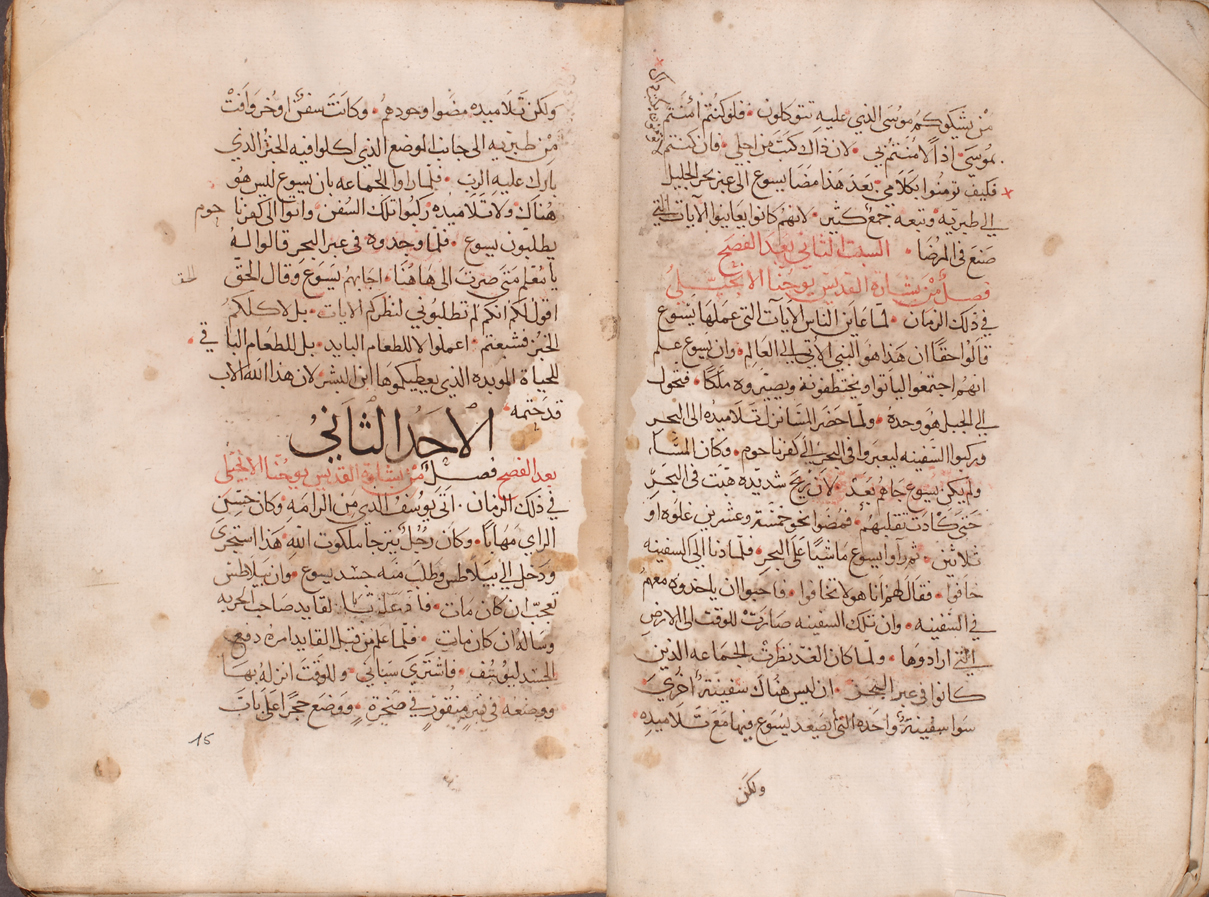 من يشكوكم موسى الذي عليه تتوكلون • فلو كنتم امنتم
بموسى • اذا لامنتم بي • لان ذاك كتب من اجلي • فان كنتم
فكيف تومنوا بكلامي • بعد هذا مضا يسوع الى عبر بحر الجليل
الي طبريه وتبعه جمع كثير • لانهم كانوا يعاينوا الآيات التي
صنع في المرضا • السبت الثاني بعد الفصح
فصل من بشارة القديس يوحنا الانجيلي
في ذلك الزمان • لما عاين الناس الآيات التي عملها يسوع
قالوا حقا ان هذا هو النبي الاتي الي العالم • وان يسوع علم
انهم اجتمعوا لياتوا ويختطفونه ويصيروه ملكا • فتحول
الي الجبل هو وحده • ولما حضر المسا نزل تلاميده الى البحر
وركبوا السفينه ليعبروا في البحر الي كفرنا حوم • وكان المسا
ولم يكن يسوع جاهم بعد • لان ريح شديده هبت في البحر
حتي كادت تقلبهم • فمضوا نحو خمسة وعشرين علوه او
ثلاثين • ثم رآوا يسوع ماشيا على البحر • فلما دنا الي السفينه
خافوا • فقال لهم انا هو لا تخافوا • فاحبوا ان ياخدوه معهم
في السفينه • وان تلك السفينه صارت للوقت الى الارض
التي ارادوها • ولما كان الغد نظرت الجماعه الذين
كانوا في عبر البحر • ان ليس هناك سفينة اخرى
سوا سفينة واحده التي صعد يسوع فيها مع تلاميده
ولكن
ولكن تلاميده مضوا وحودهم • وكانت سفن اوخر وافت
من طبريه الى جانب الموضع الذي اكلوا فيه الخبز الذي
بارك عليه الرب • فلما راوا الجماعه بان يسوع ليس هو
هناك ولا تلاميده ركبوا تلك السفن واتوا الى كفرنا حوم
يطلبون يسوع • فلما وجدوه في عبر البحر قالوا له
يا معلم متى صرت الى هاهنا • اجابهم يسوع وقال الحق
اقول لكم انكم لم تطلبوني لنظركم الايات • بل لاكلكم
الخبز فشبعتم • اعملوا لا للطعام البايد • بل للطعام الباقي •
للحياة الموبده الذي يعطيكموها ابن البشر لان هذا الله الاب
قد ختمه •
الاحد الثاني
بعد الفصح فصل من بشارة القديس يوحنا الانجيلي
في ذلك الزمان • اتى يوسف الدي من الرامه وكان حسن
الراي مهابا • وكان رجل يترجا ملكوت الله هذا استجرى
ودخل الي بيلاطس وطلب منه جسد يسوع • وان بيلاطس
تعجب ان كان مات • فادعا لقايد صاحب الحربه
وساله ان كان مات • فلما علم من قبل القايد امر ان دفع
الجسد ليوسف • فاشترى سباني • وللوقت انزله بها
ووضعه في قبر منقور في صخرة • ووضع حجرا على باب
15